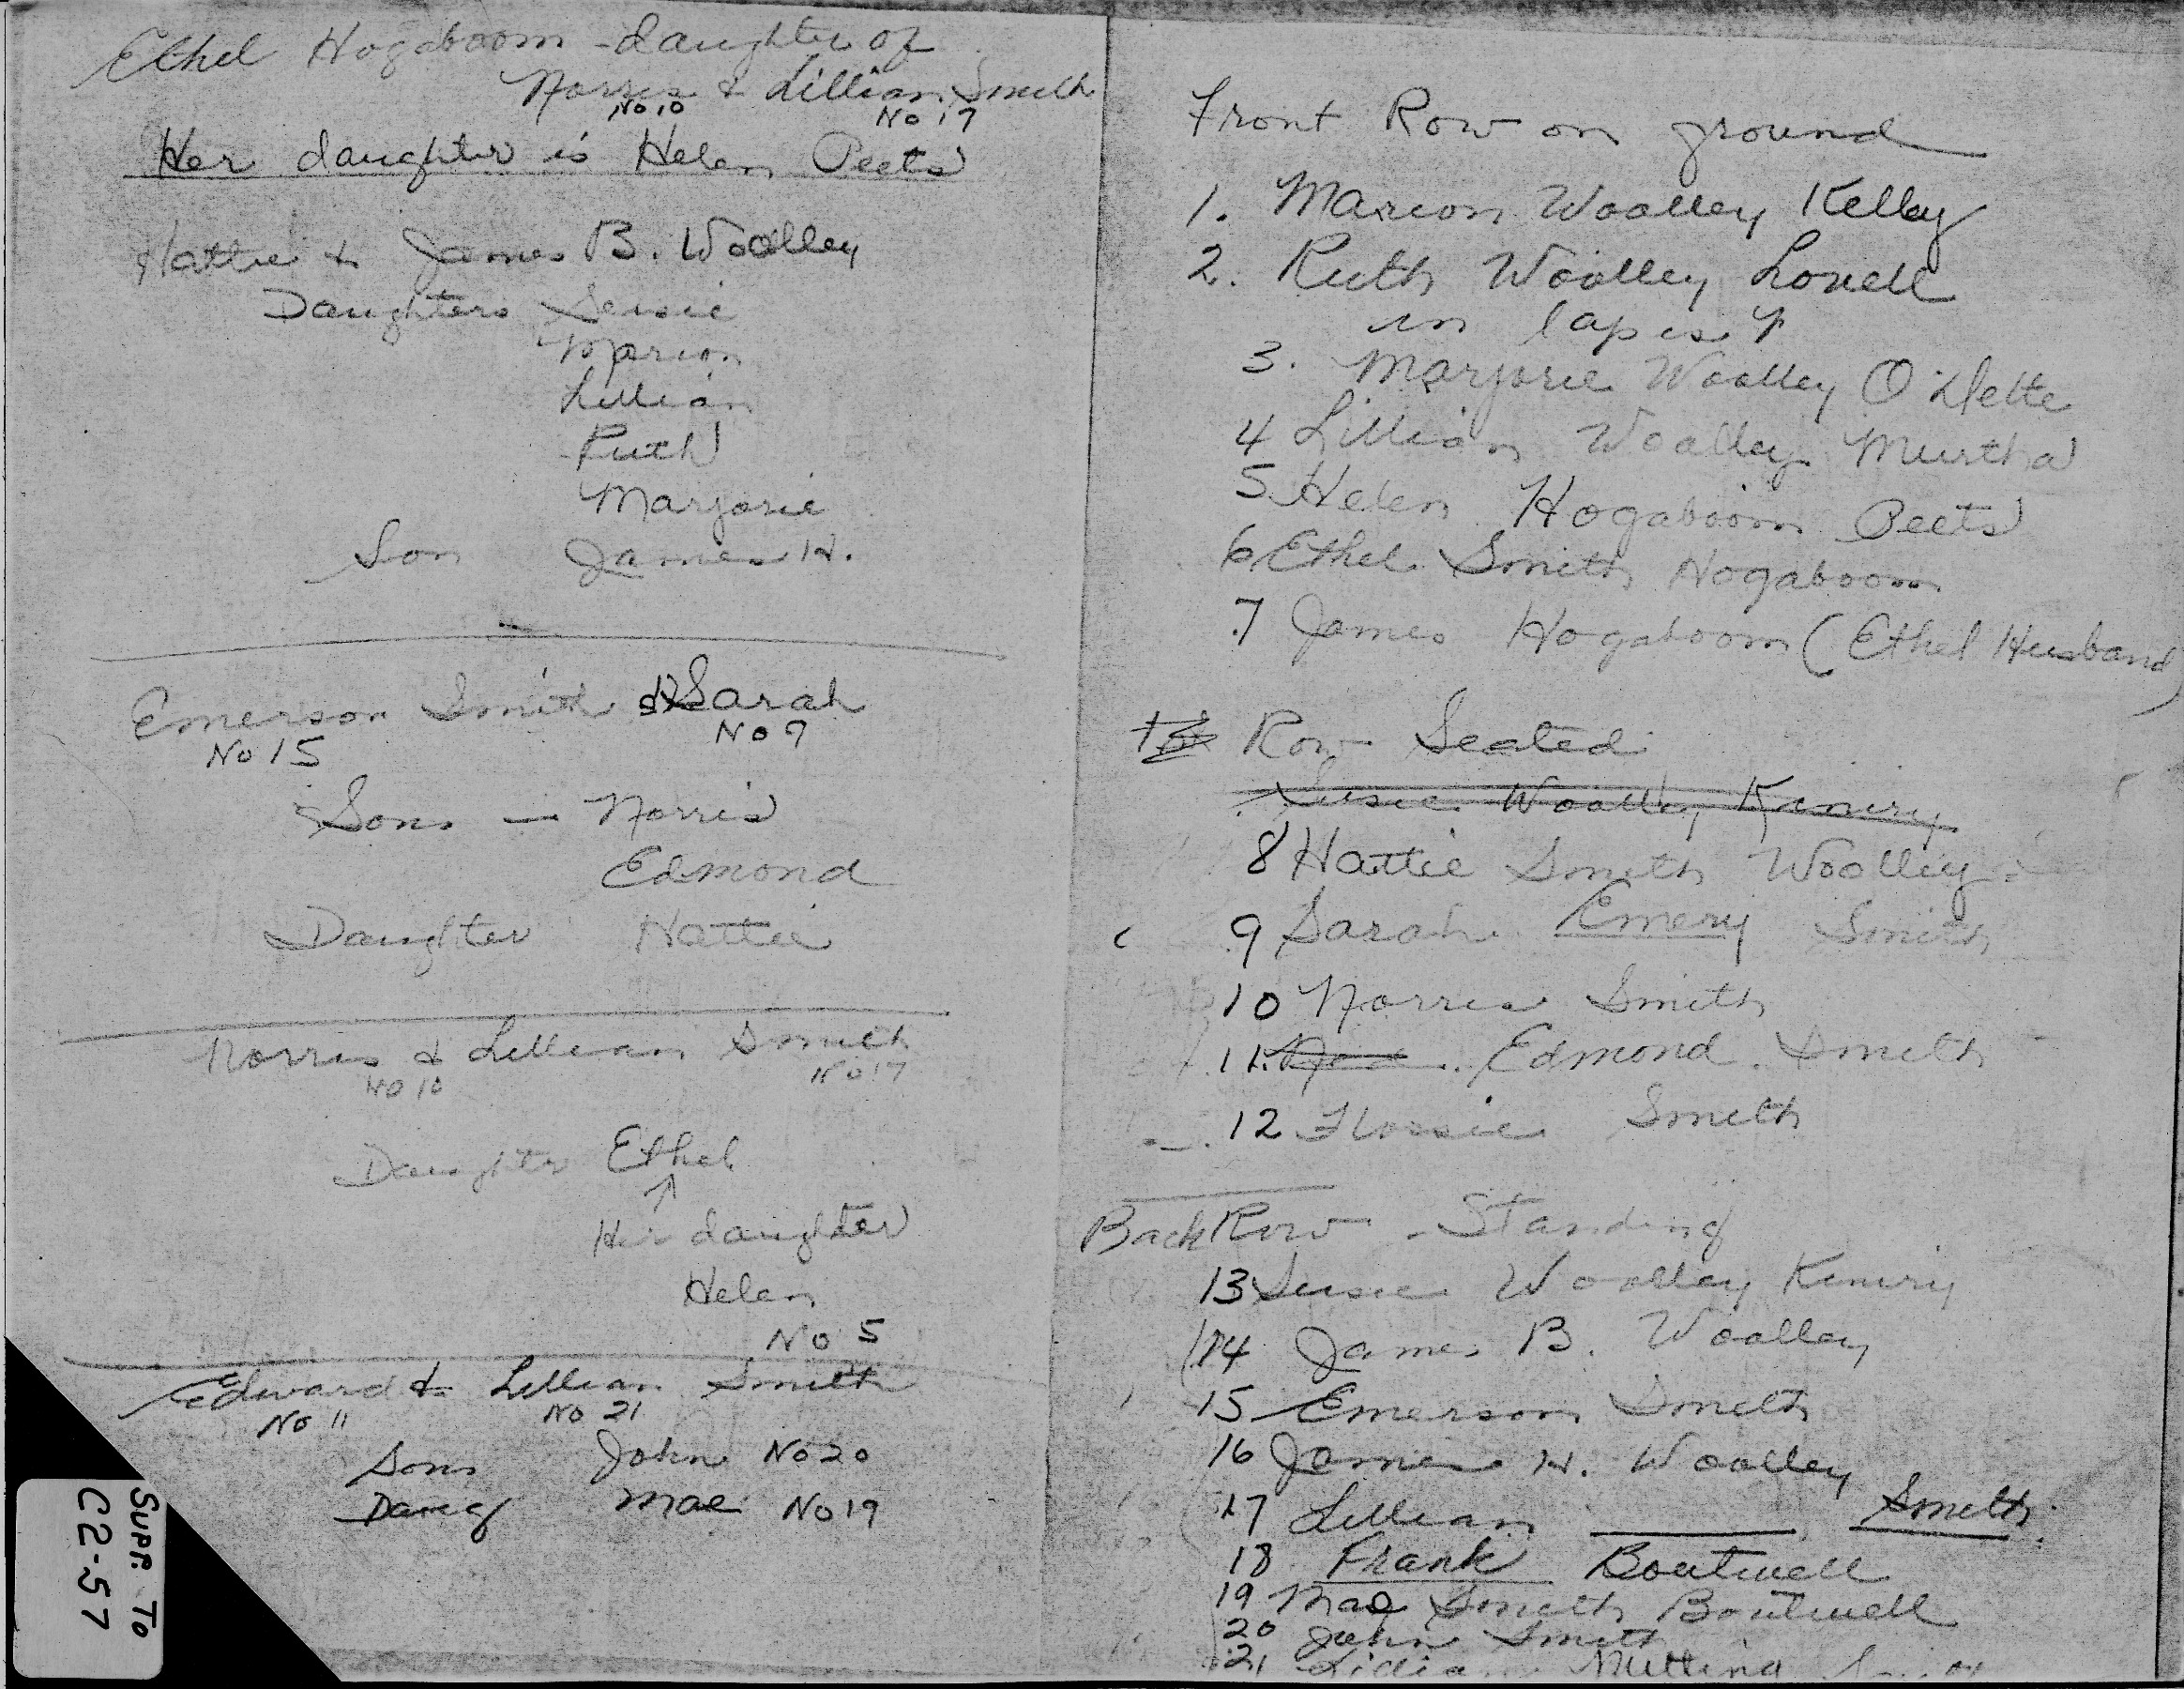 Ethel Hogaboom - daughter of
Norris & Lillian Smith
No 10 No 17
Her daughter is Helen Peets
Hattie & James B. Woolley
Daughters Susie
Marion
Lillian
Ruth
Marjorie
Son James H.
Emerson Smith & Sarah
No 15 No 9
Sons - Norris
Edmond
Daughter Hattie
Norris & Lillian Smith
No 10 No 17
Daughter Ethel
↑
Her daughter
Helen
No 5
Edward & Lillian Smith
No 11 No 21
Sons John No 20
Daug Mae No 19
Supp. To
C2-57
Front Row on ground
1. Marion Woolley Kelley
2. Ruth Woolley Lovell
in lap is
3. Marjorie Woolley O'Dette
4 Lillian Woolley Murtha
5 Helen Hogaboom Peets
6 Ethel Smith Hogaboom
7 James Hogaboom (Ethel Husband)
Row Seated
Susie Woolley Keniry
8 Hattie Smith Woolley
9 Sarah Emery Smith
10 Norris Smith
11. Edmond Smith
12 Flossie Smith
Back Row - Standing
13 Susie Woolley Keniry
14 James B. Woolley
15 Emerson Smith
16 James H. Woolley
17 Lillian ______ Smith
18 Frank Boutwell
19 Mae Smith Boutwell
20 John Smith
21 Lillian Nutting